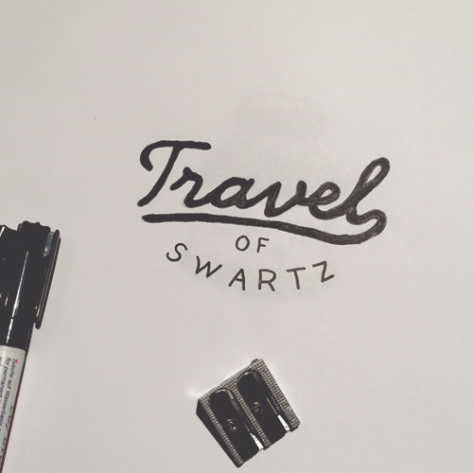 Travel
OF
SWARTZ